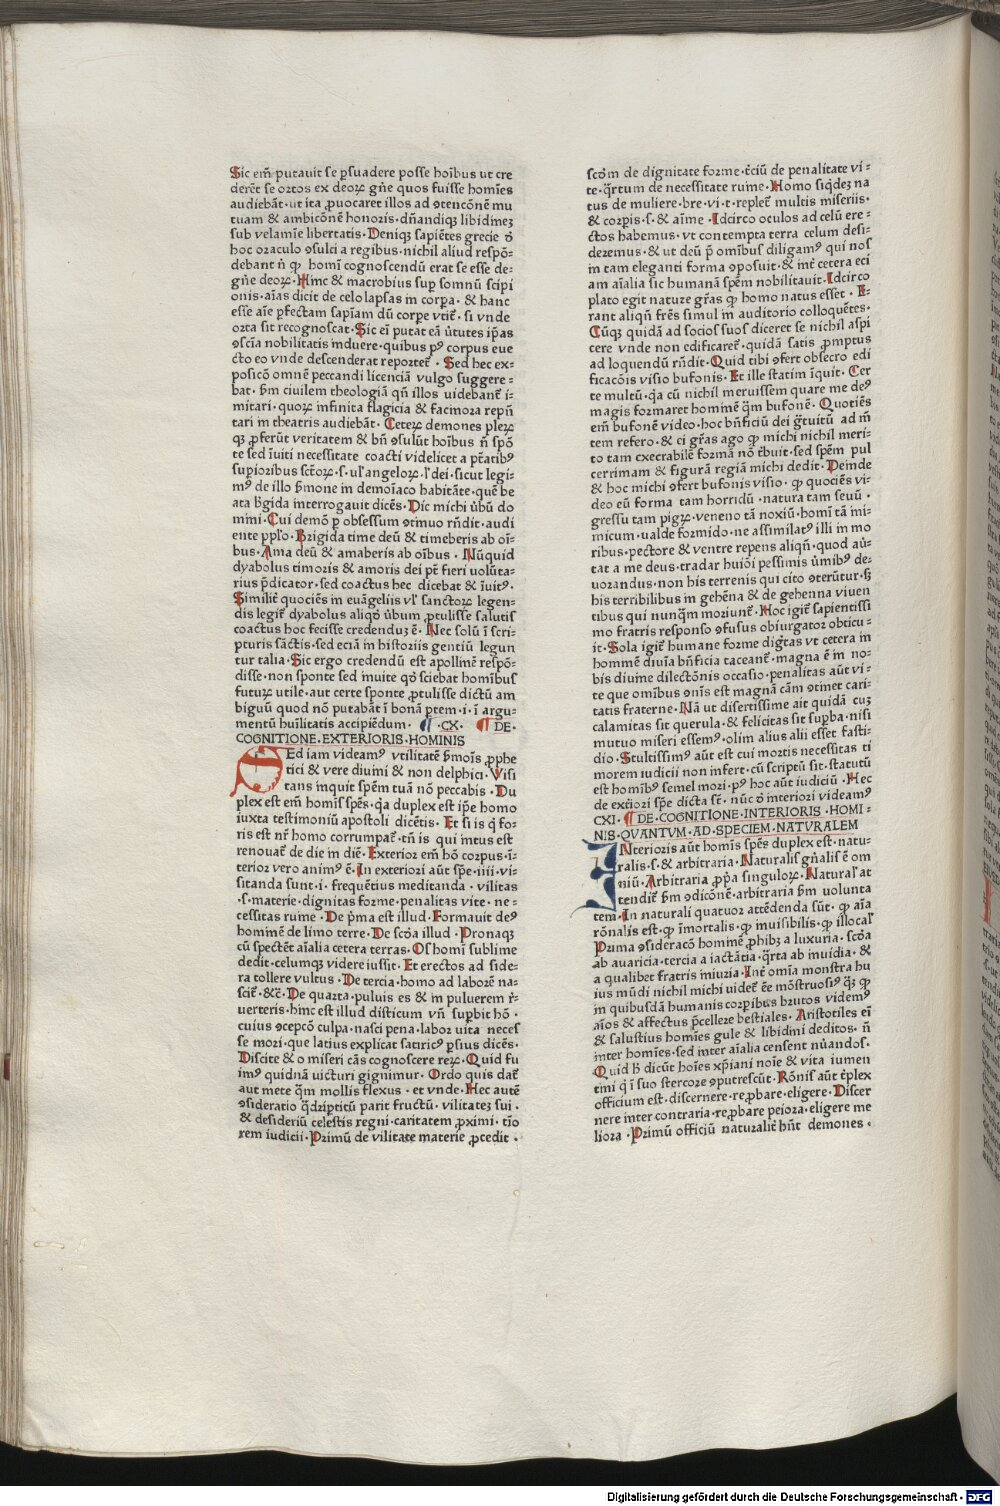 Sic em̄ putauit se ꝑsuadere posse hoībus ut cre
derēt se ortos ex deoꝝ gn̄e quos fuisse homīes
audiebāt. ut ita ꝓuocaret illos ad ꝯtencōnē mu
tuam & ambicōnē honoris. dn̄andiqꝫ libidineꝫ
sub velamīe libertatis. Deniqꝫ sapiētes grecie ꝺ
hoc oraculo ꝯsulci a regibus. nichil aliud respō⸗
debant n̄ ꝙ homī cognoscendū erat se esse de⸗
gn̄e deoꝝ. Hinc & macrobius sup somnū scipi
onis. aīas dicit de celo lapsas in corpa. & hanc
esse aīe ꝑfectam sapīam dū corpe vtit̄. si vnde
orta sit recognoscat. Sic eī putat eā v̄tutes ip̄as
ꝯscīa nobilitatis induere. quibus pꝰ corpus eue
cto eo vnde descenderat reportet̄. Sed hec ex⸗
posicō omnē peccandi licenciā vulgo suggere⸗
bat. ẜm ciuilem theologiā qn̄ illos uidebant̄ i⸗
mitari. quoꝝ infinita flagicia & facinora repn̄
tari in theatris audiebāt. Ceteꝝ demones pleꝝ
qꝫ ꝓferūt veritatem & bn̄ ꝯsulūt hoībus n̄ spō
te sed īuiti necessitate coacti videlicet a ptātibꝰ
supioribus sct̄oꝝ. s. ul̄ angeloꝝ. l̄ dei. sicut legi⸗
mꝰ de illo ẜmone in demoīaco habitāte. quē be
ata b̄gida interrogauit dicēs. Dic michi v̄bū do
mini. Cui demō ꝑ obsessum ꝯtinuo rn̄dit. audi
ente ppl̄o. Brigida time deū & timeberis ab oī⸗
bus. Ama deū & amaberis ab oībus. Nūquid
dyabolus timoris & amoris dei pt̄ fieri uolūta⸗
rius p̄dicator. sed coactus hec dicebat & īuitꝰ.
Similit̄ quociēs in euāgeliis vl̄ sanctoꝝ legen⸗
dis legit̄ dyabolus aliqꝺ v̄bum ꝓtulisse salutis
coactus hoc fecisse credenduꝫ ē. Nec solū ī scri⸗
pturis sāctis. sed eciā in historiis gentiū legun
tur talia. Sic ergo credendū est apollinē respō⸗
disse. non sponte sed muite qꝺ sciebat hominibus
futuꝝ utile. aut certe sponte ꝓtulisse dictū am
biguū quod nō putabāt ī bonā ptem. i. ī argu⸗
mentū huīlitatis accipiēdum. ¶ .CX. ¶ DE.
COGNITIONE.EXTERIORIS.HOMINIS
SEd iam videamꝰ vtilitatē ẜmoīs ꝓphe
tici & vere diuini & non delphici. Visi
tans inquit spēm tuā nō peccabis. Du
plex est em̄ homīs spēs. qꝛa duplex est ip̄e homo
iuxta testimoniū apostoli dicētis. Et si is q̄ fo⸗
ris est nr̄ homo corrumpat̄. tn̄ is qui intus est
renouat̄ de die in diē. Exterior em̄ hō corpus. i⸗
terior vero animꝰ ē. In exteriori aūt spe. iiii. vi⸗
sitanda sunt. i. frequētius meditanda. vilitas
.s. materie. dignitas forme. penalitas vite. ne⸗
cessitas ruine. De p̄ma est illud. Formauit deꝰ
hominē de limo terre. De scd̄a illud. Pronaqꝫ
cū spectēt aīalia cetera terras. Os homī sublime
dedit. celumqꝫ videre iussit. Et erectos ad side⸗
ra tollere vultus. De tercia. homo ad laborē na⸗
scit̄. &c̄. De quarta. puluis es & in puluerem r̄⸗
uerteris. hinc est illud disticum vn̄ supbit hō.
cuius ꝯcepcō culpa. nasci pena. labor uita neces
se mori. que latius explicat satiricꝰ ꝑsius dicēs.
Discite & o miseri cās cognoscere reꝝ. Quid su
imꝰ quidnā uicturi gignimur. Ordo quis dat̄
aut mete q̄m mollis flexus. et vnde. Hec autē
ꝯsideratio q̄dripticū parit fructū. vilitateꝫ sui.
& desideriū celestis regni. caritatem ꝓximi. tio
rem iudicii. Primū de vilitate materie ꝓcedit.
scd̄m de dignitate forme. t̄ciū de penalitate vi⸗
te. q̄rtum de necessitate ruine. Homo siqͥdeꝫ na
tus de muliere. bre. vi. t. replet̄ multis miseriis.
& corpis. s. & aīme. Idcirco oculos ad celū ere⸗
ctos habemus. vt contempta terra celum desi⸗
deremus. & ut deū p̄ omībus diligamꝰ qui nos
in tam eleganti forma ꝯposuit. & int̄ cetera eci
am aīalia sic humanā spēm nobilitauit. Idcirco
plato egit nature gr̄as ꝙ homo natus esset. E⸗
rant aliqn̄ fres simul in auditorio colloquētes.
Cūqꝫ quidā ad socios suos diceret se nichil aspi
cere vnde non edificaret̄. quidā satis ꝓmptus
ad loquendū rn̄dit. Quid tibi ꝯfert obsecro edi
ficacōis visio bufonis. Et ille statim īquit. Cer
te multū. qꝛa cū nichil meruissem quare me deꝰ
magis formaret hominē q̄m bufonē. Quotiēs
em̄ bufonē video. hoc bn̄ficiū dei g̈tuitū ad m̄
tem refero. & ei gr̄as ago ꝙ michi nichil meri⸗
to tam execrabilē formā nō t̄buit. sed spēm pul
cerrimam & figurā regiā michi dedit. Deinde
& hoc michi ꝯfert bufonis visio. ꝙ quociēs vi⸗
deo eū forma tam horridū. natura tam seuū.
gressu tam pigꝝ. veneno tā noxiū. homī tā ini⸗
micum. ualde formido. ne assimilatꝰ illi in mo
ribus. pectore & ventre repens aliqn̄. quod aū⸗
tat a me deus. tradar huiōi pessimis v̄mibꝰ de⸗
uorandus. non his terrenis qui cito ꝯterūtur. ꝫ
his terribilibus in gehēna & de gehenna viuen
tibus qui nunq̄m moriunt̄. Hoc igit̄ sapientissi
mo fratris responso ꝯfusus obiurgator obticu⸗
it. Sola igit̄ humane forme dig̈tas vt cetera in
hominē diuīa bn̄ficia taceant̄. magna ē in no⸗
bis diuine dilectōnis occasio. penalitas aūt vi⸗
te que omībus ꝯnīs est magnā cām ꝯtinet cari⸗
tatis fraterne. Nā ut disertissime ait quidā cuꝫ
calamitas sit querula. & felicitas sit supba. nisi
mutuo miseri essemꝰ. olim alius alii esset fasti⸗
dio. Stultissimꝰ aūt est cui mortis necessitas ti
morem iudicii non infert. cū scriptū sit. statutū
est homībꝰ semel mori. pꝰ hoc aūt iudiciū. Hec
de ext̄iori spe dicta sē. nūc ꝺ interiori videamꝰ
CXI. ¶ DE.COGNITIONE.INTERIORIS.HOMI⸗
NIS.QVANTVM.AD.SPECIEM.NATVRALEM
INterioris aūt homīs spēs duplex est. natu⸗
ralis. s. & arbitraria. Naturalis gn̄alis ē om
niū. Arbitraria ꝓpa singuloꝝ. Natural̄ at
tendit̄ ẜm ꝯdicōnē. arbitraria ẜm volunta
tem. In naturali quatuor attēdenda sūt. ꝙ aīa
rōnalis est. ꝙ īmortalis. ꝙ inuisibilis. ꝙ illocal̄
Prima ꝯsideracō hominē ꝓhibꝫ a luxuria. scd̄a
ab auaricia. tercia a iactātia. q̄rta ab inuidia. &
a qualibet fratris iniuria. Int̄ omīa monstra hu
ius mūdi nichil michi videt̄ ēe mōstruosiꝰ q̄ꝫ ꝙ
in quibusdā humanis corpibus brutos videmꝰ
aīos & affectus p̄cellere bestiales. Aristotiles eī
& salustius homīes gule & libidini deditos. n̄
inter homīes. sed inter aīalia censent nūandos.
Quid h̄ dicūt hoīes xp̄iani noīe & vita iumen
tini q̄ ī suo stercore ꝯputrescūt. Rōnis aūt t̄plex
officium est. discernere. reꝓbare. eligere. Discer
nere inter contraria. reꝓbare peiora. eligere me
liora. Primū officiū naturalit̄ hn̄t demones.
Digitalisierung gefördert durch die Deutsche Forschungsgemeinschaft - DFG